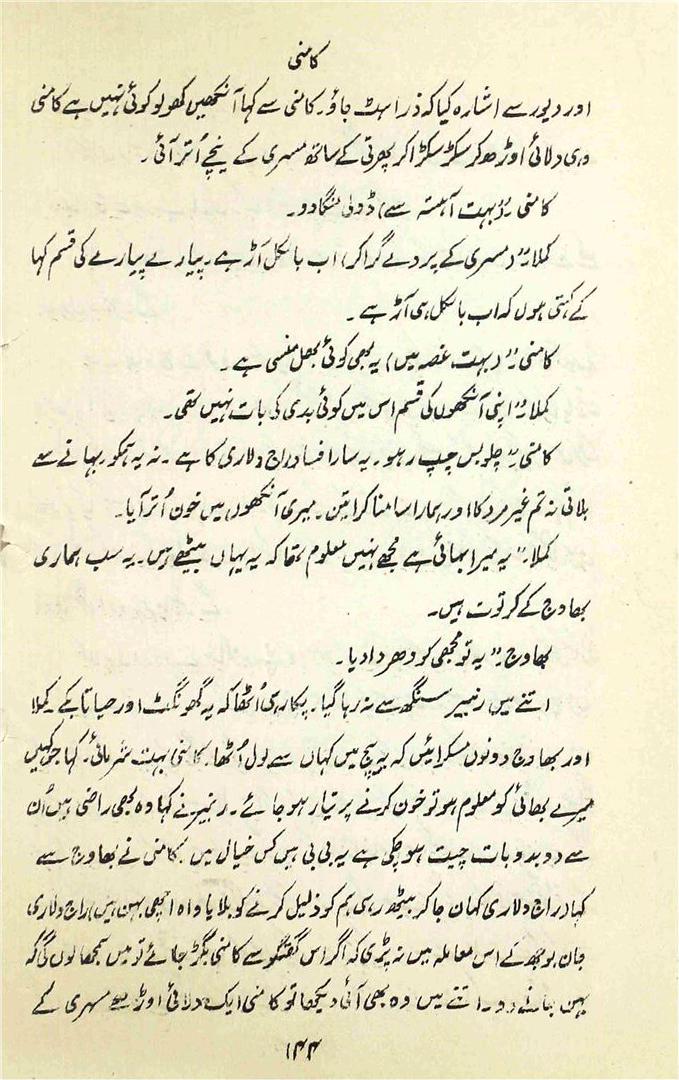 کامنی
اور دیور سے اشارہ کیا کہ ذرا ہٹ جاؤ۔ کامنی سے کہا آنکھیں کھولو کوئی نہیں ہے کامنی
وہی دلائی اوڑھ کر سکڑ سکڑا کر پھرتی کے ساتھ مسہری کے نیچے اُتر آئی۔
کامنی :۔ (بہت آہستہ سے) ڈولی منگا دو۔
کملا :۔ (مسہری کے پردے گرا کر) اب بالکل آڑ ہے۔ پیارے پیارے کی قسم کہا
کے کہتی ہوں کہ اب بالکل ہی آڑ ہے۔
کامنی :۔ (بہت غصہ میں) یہ بھی کوئی بھل منسی ہے۔
کملا :۔ اپنی آنکھوں کی قسم اس میں کوئی بدی کی بات نہیں تھی۔
کامنی :۔ چلو بس چپ رہو۔ یہ سارا فساد راج دلاری کا ہے۔ نہ یہ ہمکو بہانے سے
بلاتی نہ تم غیر مرد کا اور ہمارا سامنا کراتیں۔ میری آنکھوں میں خون اُتر آیا۔
کملا :۔ یہ میرا بھائی ہے مجھے نہیں معلوم تھا کہ یہ یہاں بیٹھے ہیں۔ یہ سب ہماری
بھاوج کے کرتوت ہیں۔
بھاوج :۔ یہ تو مجھی کو دھر دادیا۔
اتنے میں رنبیر سنگھ سے نہ رہا گیا۔ پکار ہی اُٹھا کہ یہ گھونگٹ اور حیا تا بکے۔ کملا
اور بھاوج دونوں مسکرائیں کہ یہ بیچ میں کہاں سے بول اُٹھا۔ کامنی بہت شرمائی۔ کہا جو کہیں
میرے بھائی کو معلوم ہو تو خون کرنے پر تیار ہو جائے۔ رنبیر نے کہا وہ بھی راضی ہیں اُن
سے دوبدو بات چیت ہو چکی ہے یہ بی بی ہیں کس خیال میں۔ کامنی نے بھاوج سے
کہا راج دلاری کہاں جا کر بیٹھ رہی ہم کو ذلیل کرنے کو بلایا واہ اچھی بہن ہیں راج دلاری
جان بوجھ کے اس معاملہ میں نہ پڑی کہ اگر اس گفتگو سے کامنی بگڑ جائے تو میں سمجھا لوں گی کہ
بہن جانے دو۔ اتنے میں وہ بھی آئی دیکھا تو کامنی ایک دلائی اوڑھے مسہری کے
۱۴۴